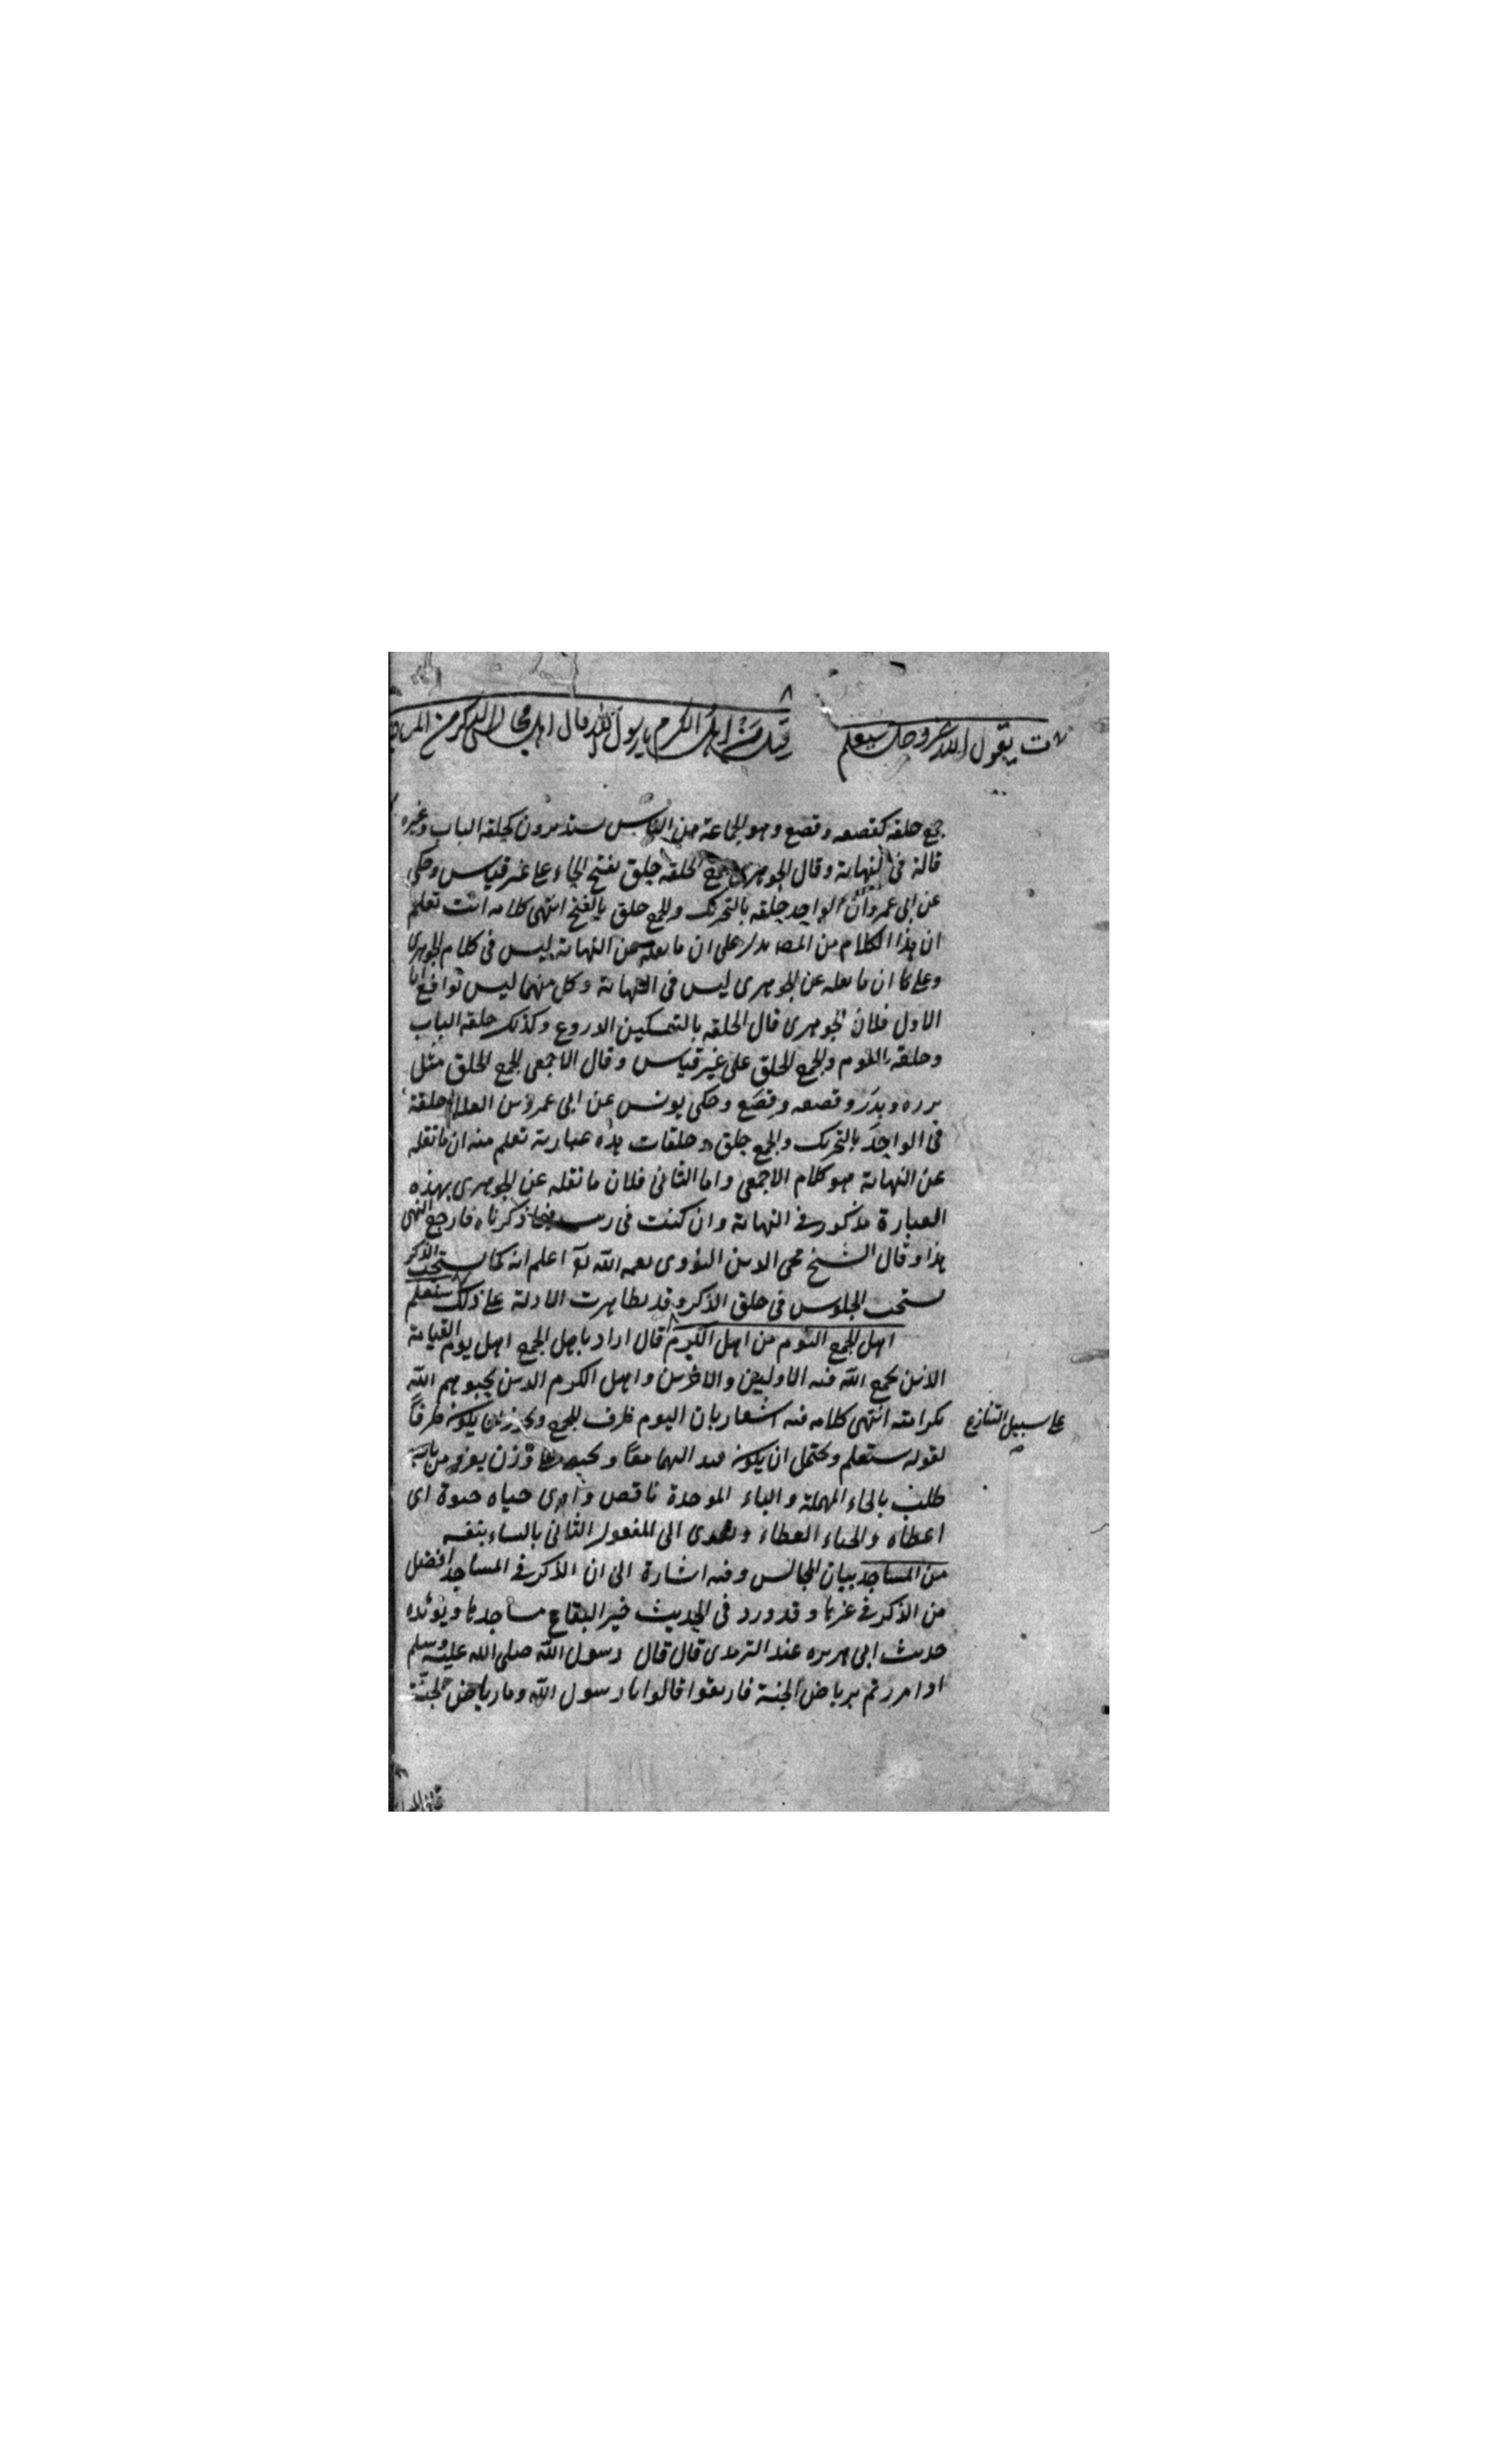 يقول الله عز وجل سيعلم
قيل من اهل الكرم يا رسول الله قال اهل مجالس الذكر من المساجد
جمع حلقه كقصعه وقصع وهو الجماعة من الناس يستديرون كحلقه الباب وغيره
قاله فى النهاية وقال الجوهرى جمع الحلقه حلق بفتح الحاء على غير قياس وحكى
عن ابى عمرو ان الواحد حلقه بالتحريك والجمع حلق بالفتح انتهى كلامه انت تعلم
ان هذا الكلام من المص يدل على ان ما نقله من النهاية ليس فى كلام الجوهرى
وعلى ان ما نقله عن الجوهرى ليس فى النهاية وكل منهما ليس بواقع اما
الاول فلان الجوهرى قال الحلقه بالتسكين الدروع وكذلك حلقه الباب
وحلقه القوم والجمع الحلق على غير قياس وقال الاصمعى الجمع الحلق مثل
بدره وبدر وقصعه وقصع وحكى يونس عن ابى عمرو بن العلاء حلقة
فى الواحد بالتحريك والجمع حلق وحلقات هذه عبارته تعلم منه ان ما نقله
عن النهاية هو كلام الاصمعى واما الثانى فلان ما نقله عن الجوهرى بهذه
العبارة مذكور فى النهاية وان كنت فى ريب مما ذكرناه فارجع اليها
هذا وقال الشيخ محى الدين النووى رحمه الله تع اعلم انه كما يستحب الذكر
يستحب الجلوس فى حلق الذكر وقد تظاهرت الادلة على ذلك ستعلم
اهل الجمع اليوم من اهل الكرم قال اراد باهل الجمع اهل يوم القيامة
الذين يجمع الله فيه الاولين والاخرين واهل الكرم الذين يحبوهم الله
بكرامته انتهى كلامه فيه اشعار بان اليوم ظرف للجمع ويجوز ان يكون ظرفا
على سبيل التنازع
لقوله ستعلم ويحتمل ان يكون قيد اليهما معا ويحبو على وزن يغزو من باب
طلب بالحاء المهملة والباء الموحدة ناقص واوى حباه حبوة اى
اعطاه والحباء العطاء وتعدى الى المفعول الثانى بالباء بنفسه
من المساجد بيان المجالس وفيه اشارة الى ان الذكر فى المساجد افضل
من الذكر فى غيرها وقد ورد فى الحديث خير البقاع مساجدها ويؤيده
حديث ابى هريره عند الترمذى قال قال رسول الله صلى الله عليه وسلم
اذا مررتم برياض الجنة فارتعوا قالوا يا رسول الله وما رياض الجنة